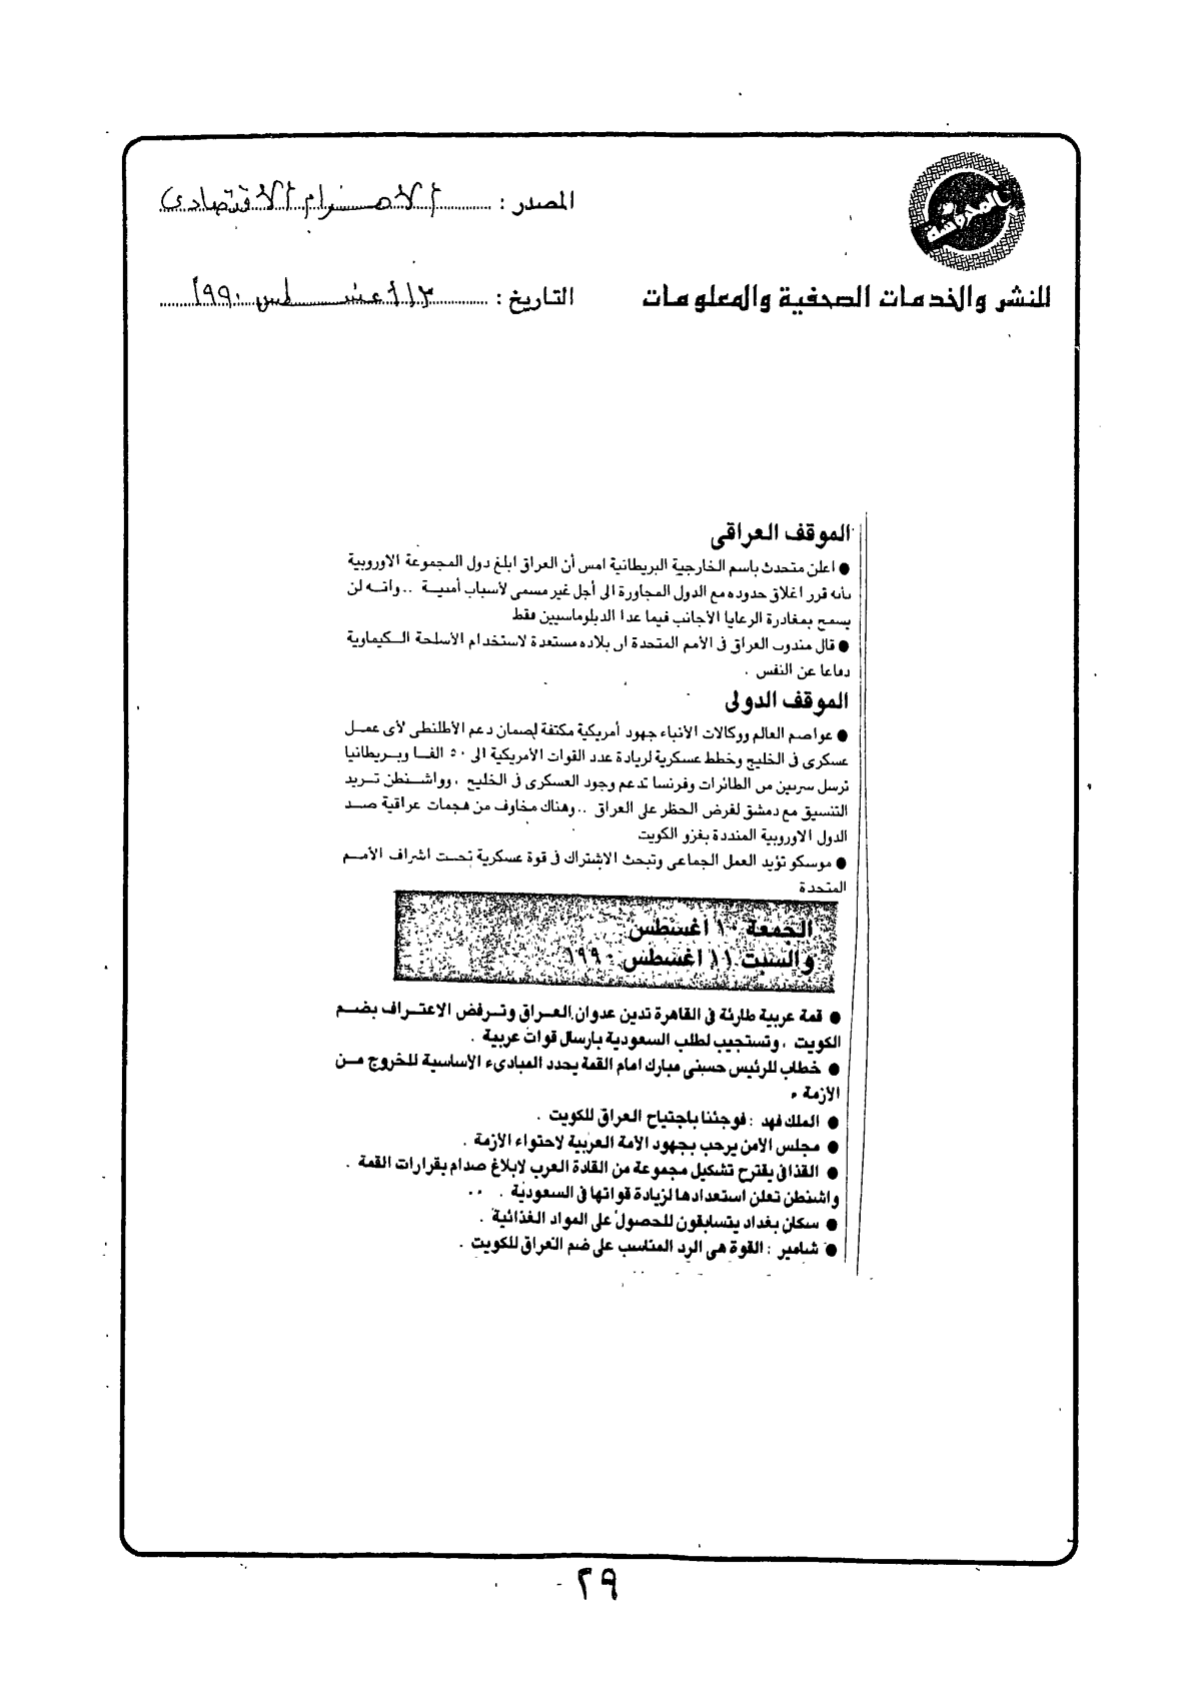 المدونة
للنشر والخدمات الصحفية والمعلومات
المصدر : الأهرام الاقتصادى
التاريخ : ١٣ أغسطس ١٩٩٠
الموقف العراقى
● اعلن متحدث باسم الخارجية البريطانية امس أن العراق ابلغ دول المجموعة الاوروبية
بأنه قرر اغلاق حدوده مع الدول المجاورة الى أجل غير مسمى لأسباب أمنية .. وانه لن
يسمح بمغادرة الرعايا الأجانب فيما عدا الدبلوماسيين فقط
● قال مندوب العراق فى الأمم المتحدة ان بلاده مستعدة لاستخدام الأسلحة الكيماوية
دفاعا عن النفس .
الموقف الدولى
● عواصم العالم ووكالات الأنباء جهود أمريكية مكثفة لضمان دعم الأطلنطى لأى عمل
عسكرى فى الخليج وخطط عسكرية لزيادة عدد القوات الأمريكية الى ٥٠ الفا وبريطانيا
ترسل سربين من الطائرات وفرنسا تدعم وجود العسكرى فى الخليج ، وواشنطن تريد
التنسيق مع دمشق لفرض الحظر على العراق .. وهناك مخاوف من هجمات عراقية ضد
الدول الاوروبية المنددة بغزو الكويت
● موسكو تؤيد العمل الجماعى وتبحث الاشتراك فى قوة عسكرية تحت اشراف الأمم
المتحدة
الجمعة ١٠ اغسطس
والسبت ١١ اغسطس ١٩٩٠
● قمة عربية طارئة فى القاهرة تدين عدوان العراق وترفض الاعتراف بضم
الكويت ، وتستجيب لطلب السعودية بارسال قوات عربية .
● خطاب للرئيس حسنى مبارك امام القمة يحدد المبادىء الاساسية للخروج من
الازمة .
● الملك فهد : فوجئنا باجتياح العراق للكويت .
● مجلس الامن يرحب بجهود الامة العربية لاحتواء الأزمة .
● القذافى يقترح تشكيل مجموعة من القادة العرب لابلاغ صدام بقرارات القمة .
واشنطن تعلن استعدادها لزيادة قواتها فى السعودية .
● سكان بغداد يتسابقون للحصول على المواد الغذائية .
● شامير : القوة هى الرد المناسب على ضم العراق للكويت .
٢٩